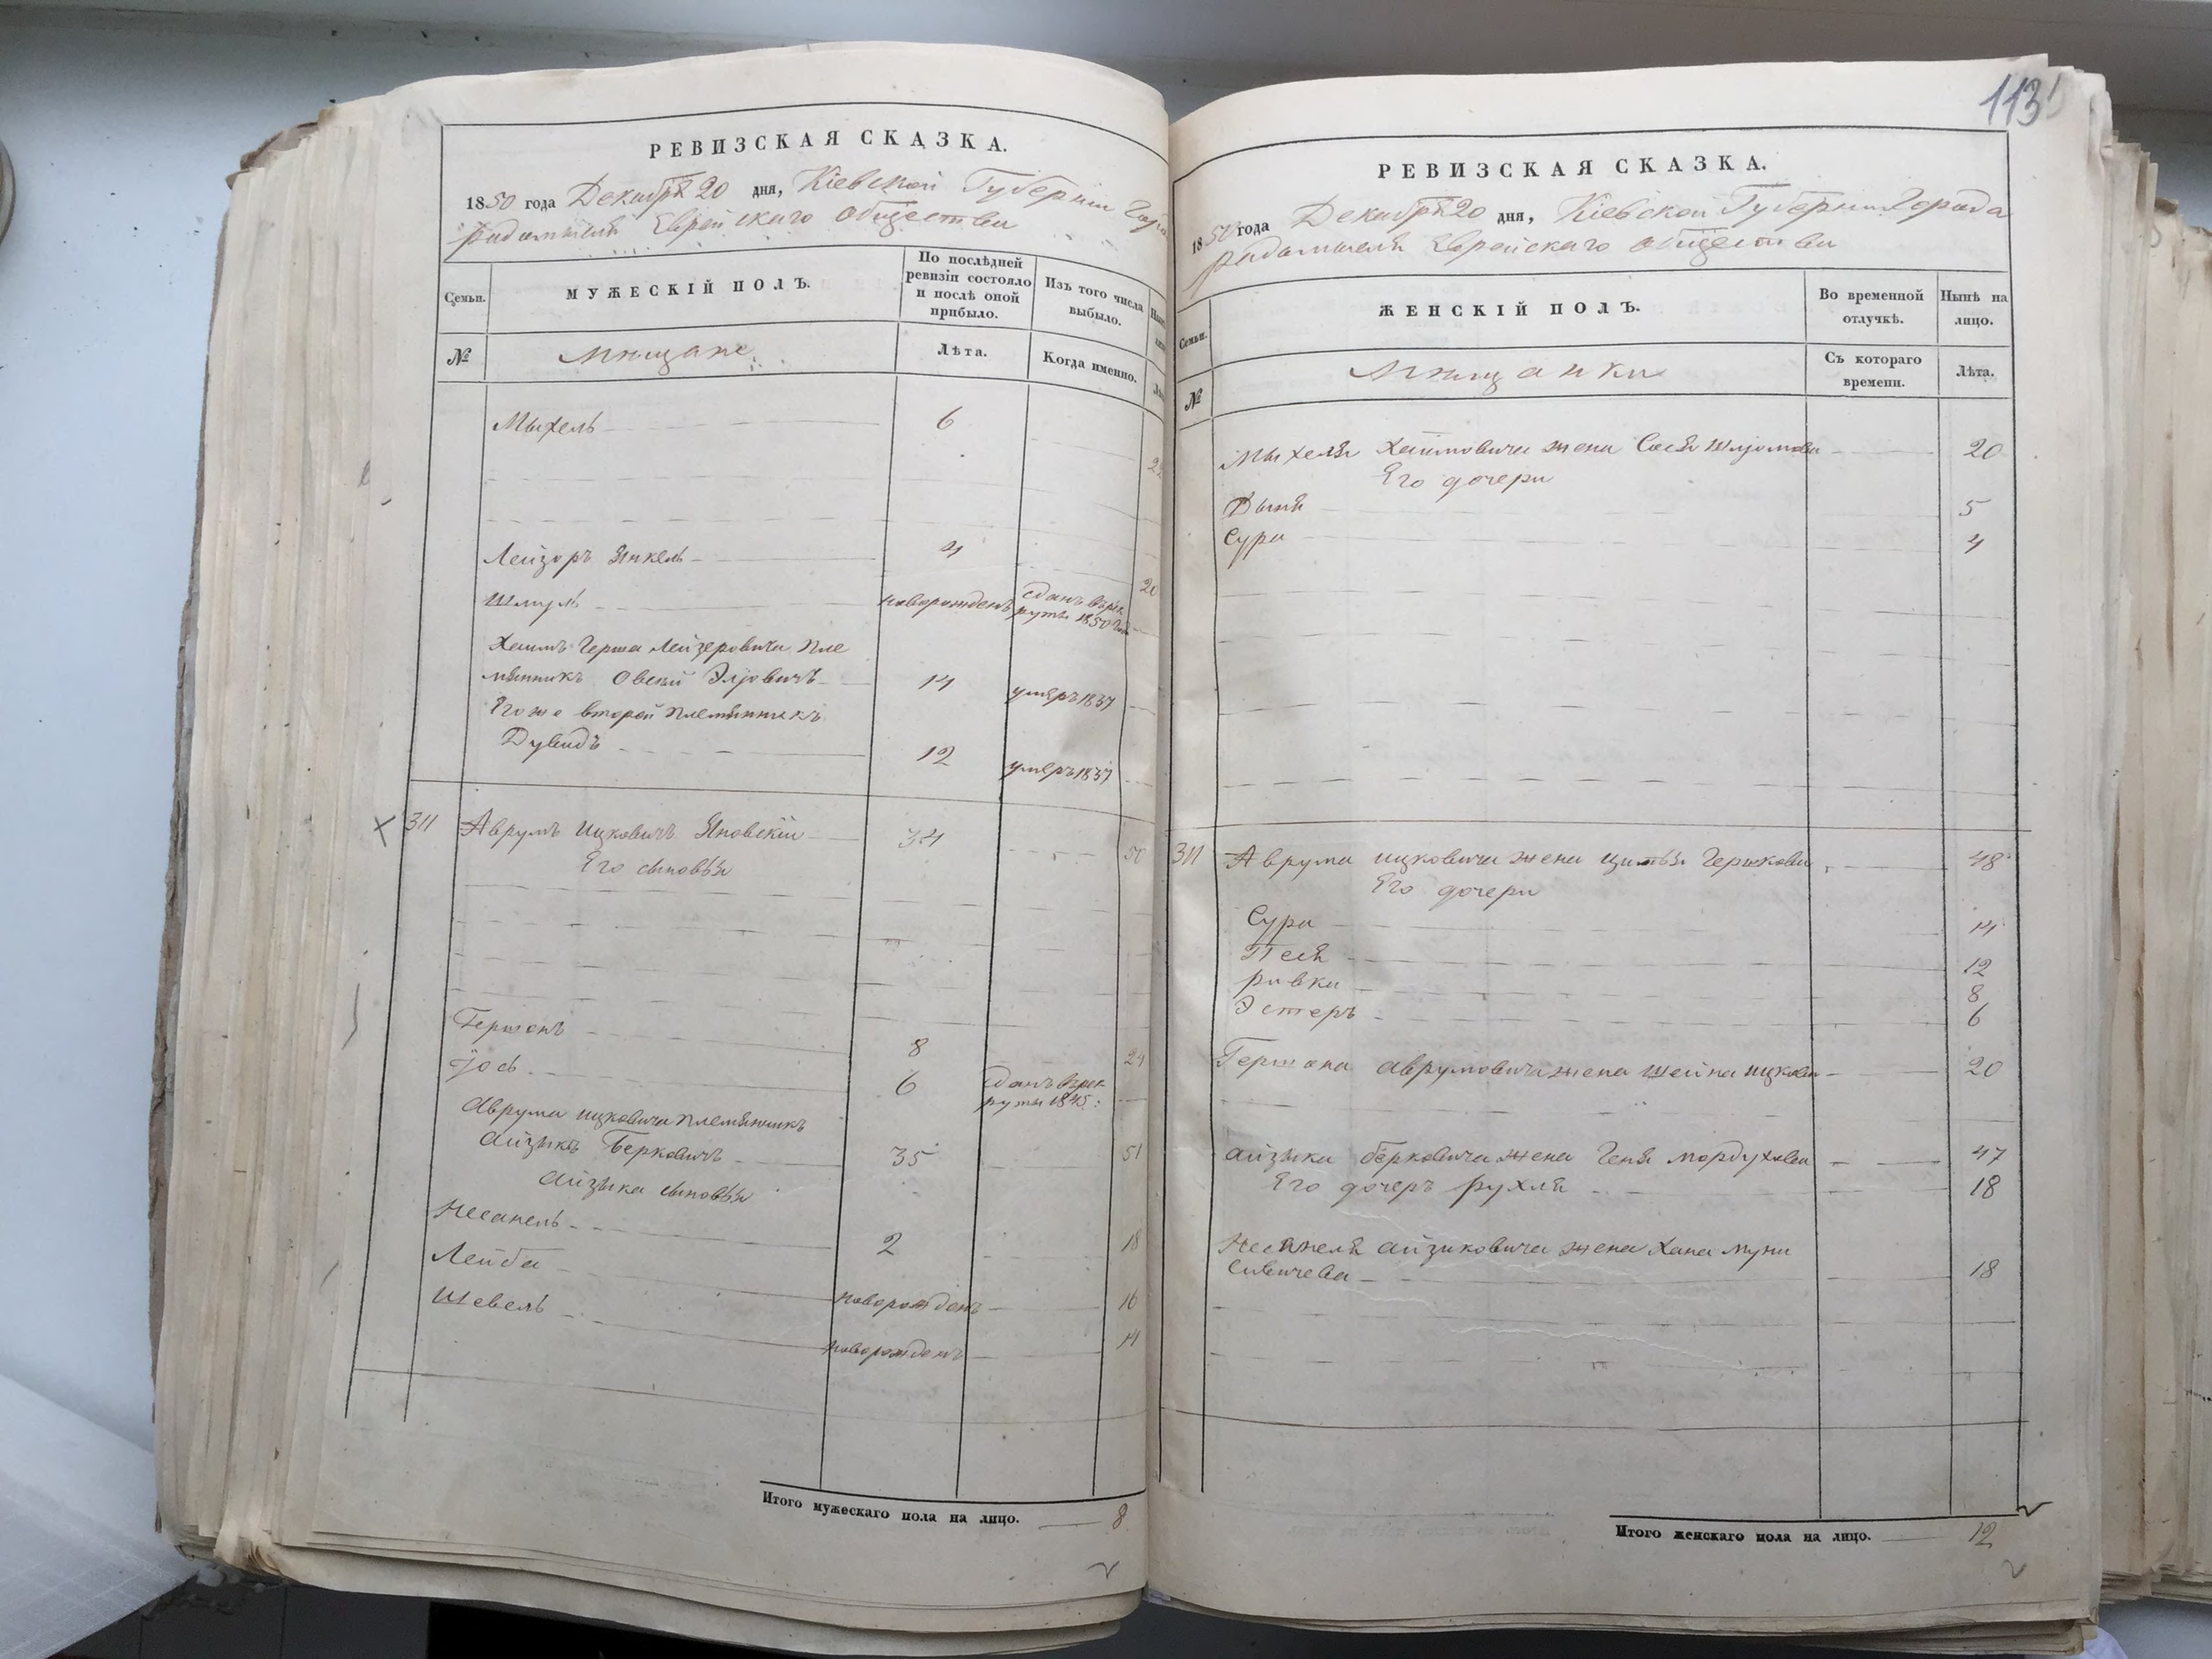 РЕВИЗСКАЯ СКАЗКА.
1850 года Декабря 20 дня, Кіевской Губерніи Горо
радомысля Еврейскаго общества
Семьи.
МУЖЕСКІЙ ПОЛЪ.
По послѣдней ревизіи состояло и послѣ оной прибыло.
Изъ того числа выбыло.
№
Мѣщане
Лѣта.
Когда именно.
Мыхель 6
22
Лейзоръ Янкель 4 20
Шмуль новорожденъ сданъ въ рек
руты 1850 года
Хаимъ Герша Лейзеровича пле
мянникъ Овсѣй Эліовичъ 14 умеръ 1837
Его же второй племянникъ
Дувидъ 12 умеръ 1837
311 Аврумъ Ицковичъ Яновскій 34 50
Его сыновья
Гершонъ 8 24
Іось 6 сданъ въ рек
руты 1845
Аврума Ицковича племянникъ
Айзыкъ Берковичъ 35 51
Айзыка сыновья
Несанель 2 18
Лейба новорожденъ 16
Шевель новорожденъ 14
Итого мужескаго пола на лицо. 8
113
РЕВИЗСКАЯ СКАЗКА.
1850 года Декабря 20 дня, Кіевской Губерніи Города
радомысля Еврейскаго общества
Семьи.
ЖЕНСКІЙ ПОЛЪ.
Во временной отлучкѣ.
Нынѣ на лицо.
№
Мѣщанки
Съ котораго времени.
Лѣта.
Мыхеля Хаимовича жена Сося Шлiомова 20
Его дочери
Дыня 5
Сура 4
311 Аврума Ицковича жена Цитля Гершкова 48
Его дочери
Сура 14
Песя 12
ривка 8
Эстеръ 6
Гершона Аврумовича жена Шейна Ицкова 20
Айзыка берковича жена Геня Мордухова 47
Его дочерь рухля 18
Несанеля Айзиковича жена Хана
18
Итого женскаго пола на лицо. 12